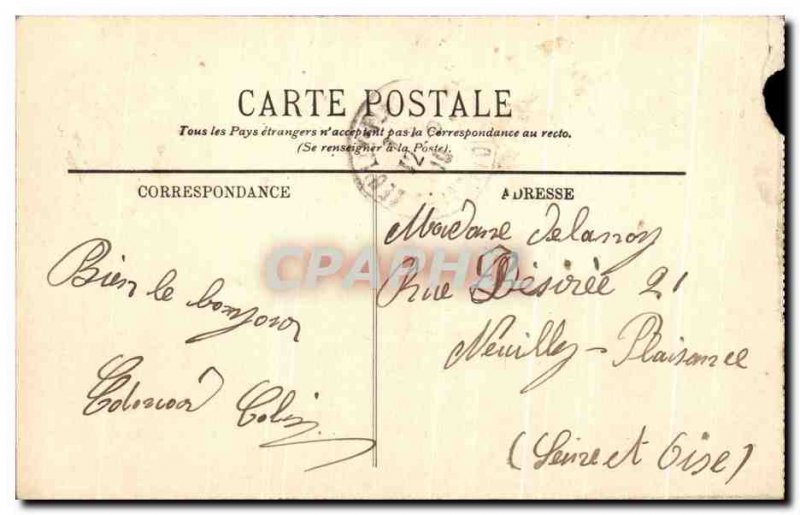 CARTE POSTALE
Tous les Pays étrangers n'acceptent pas la Correspondance au recto.
(Se renseigner à la Poste).
CORRESPONDANCE
ADRESSE
Bien le bonjour
Edouard Colin
Madame Delannoy
Rue Désirée 21
Neuilly-Plaisance
(Seine et Oise)
CPAPHIL